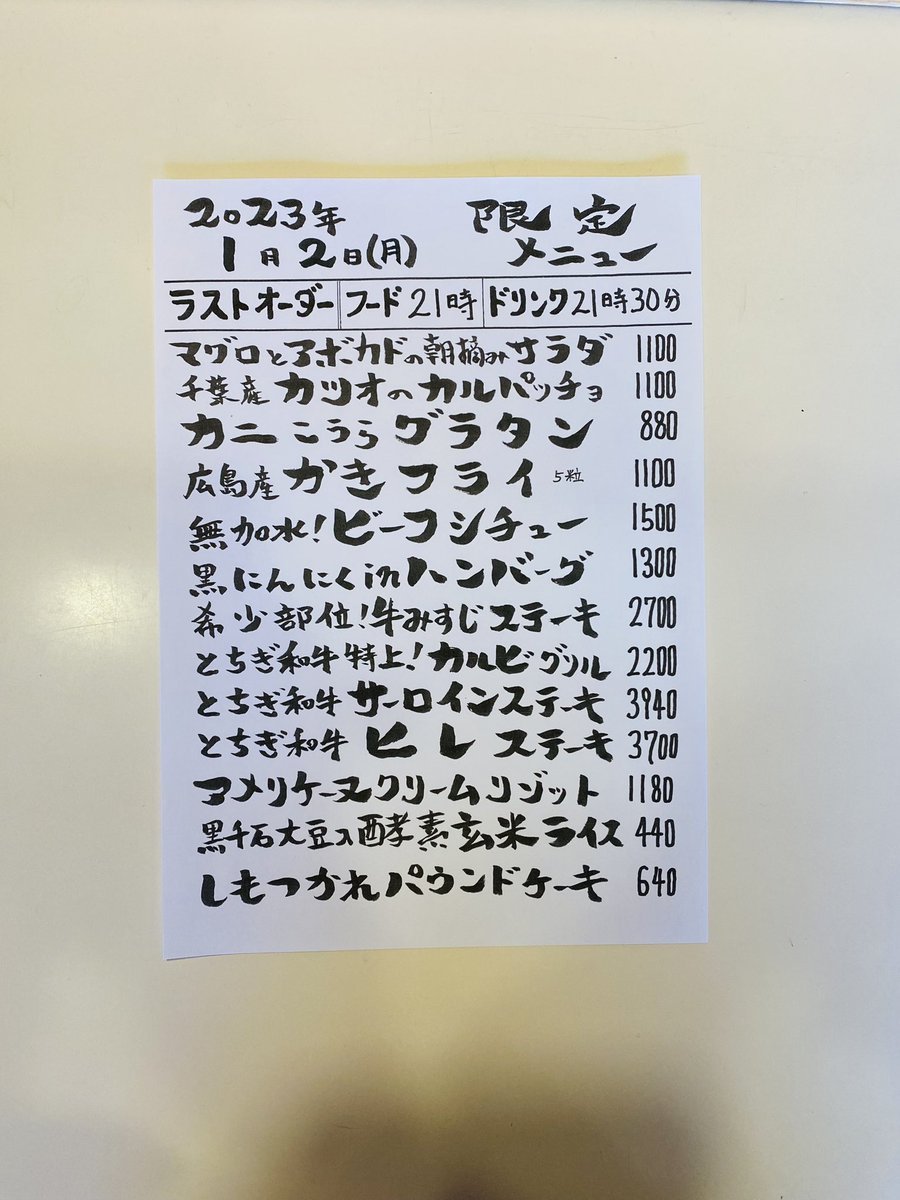 2023年
1月2日(月)
限定
メニュー
ラストオーダー フード21時 ドリンク21時30分
マグロとアボカドの朝摘みサラダ 1100
千葉産カツオのカルパッチョ 1100
カニこうらグラタン 880
広島産かきフライ 5粒 1100
無加水!ビーフシチュー 1500
黒にんにくinハンバーグ 1300
希少部位!牛みすじステーキ 2700
とちぎ和牛特上!カルビグリル 2200
とちぎ和牛サーロインステーキ 3940
とちぎ和牛ヒレステーキ 3700
アメリケーヌクリームリゾット 1180
黒千石大豆入酵素玄米ライス 440
しもつかれパウンドケーキ 640